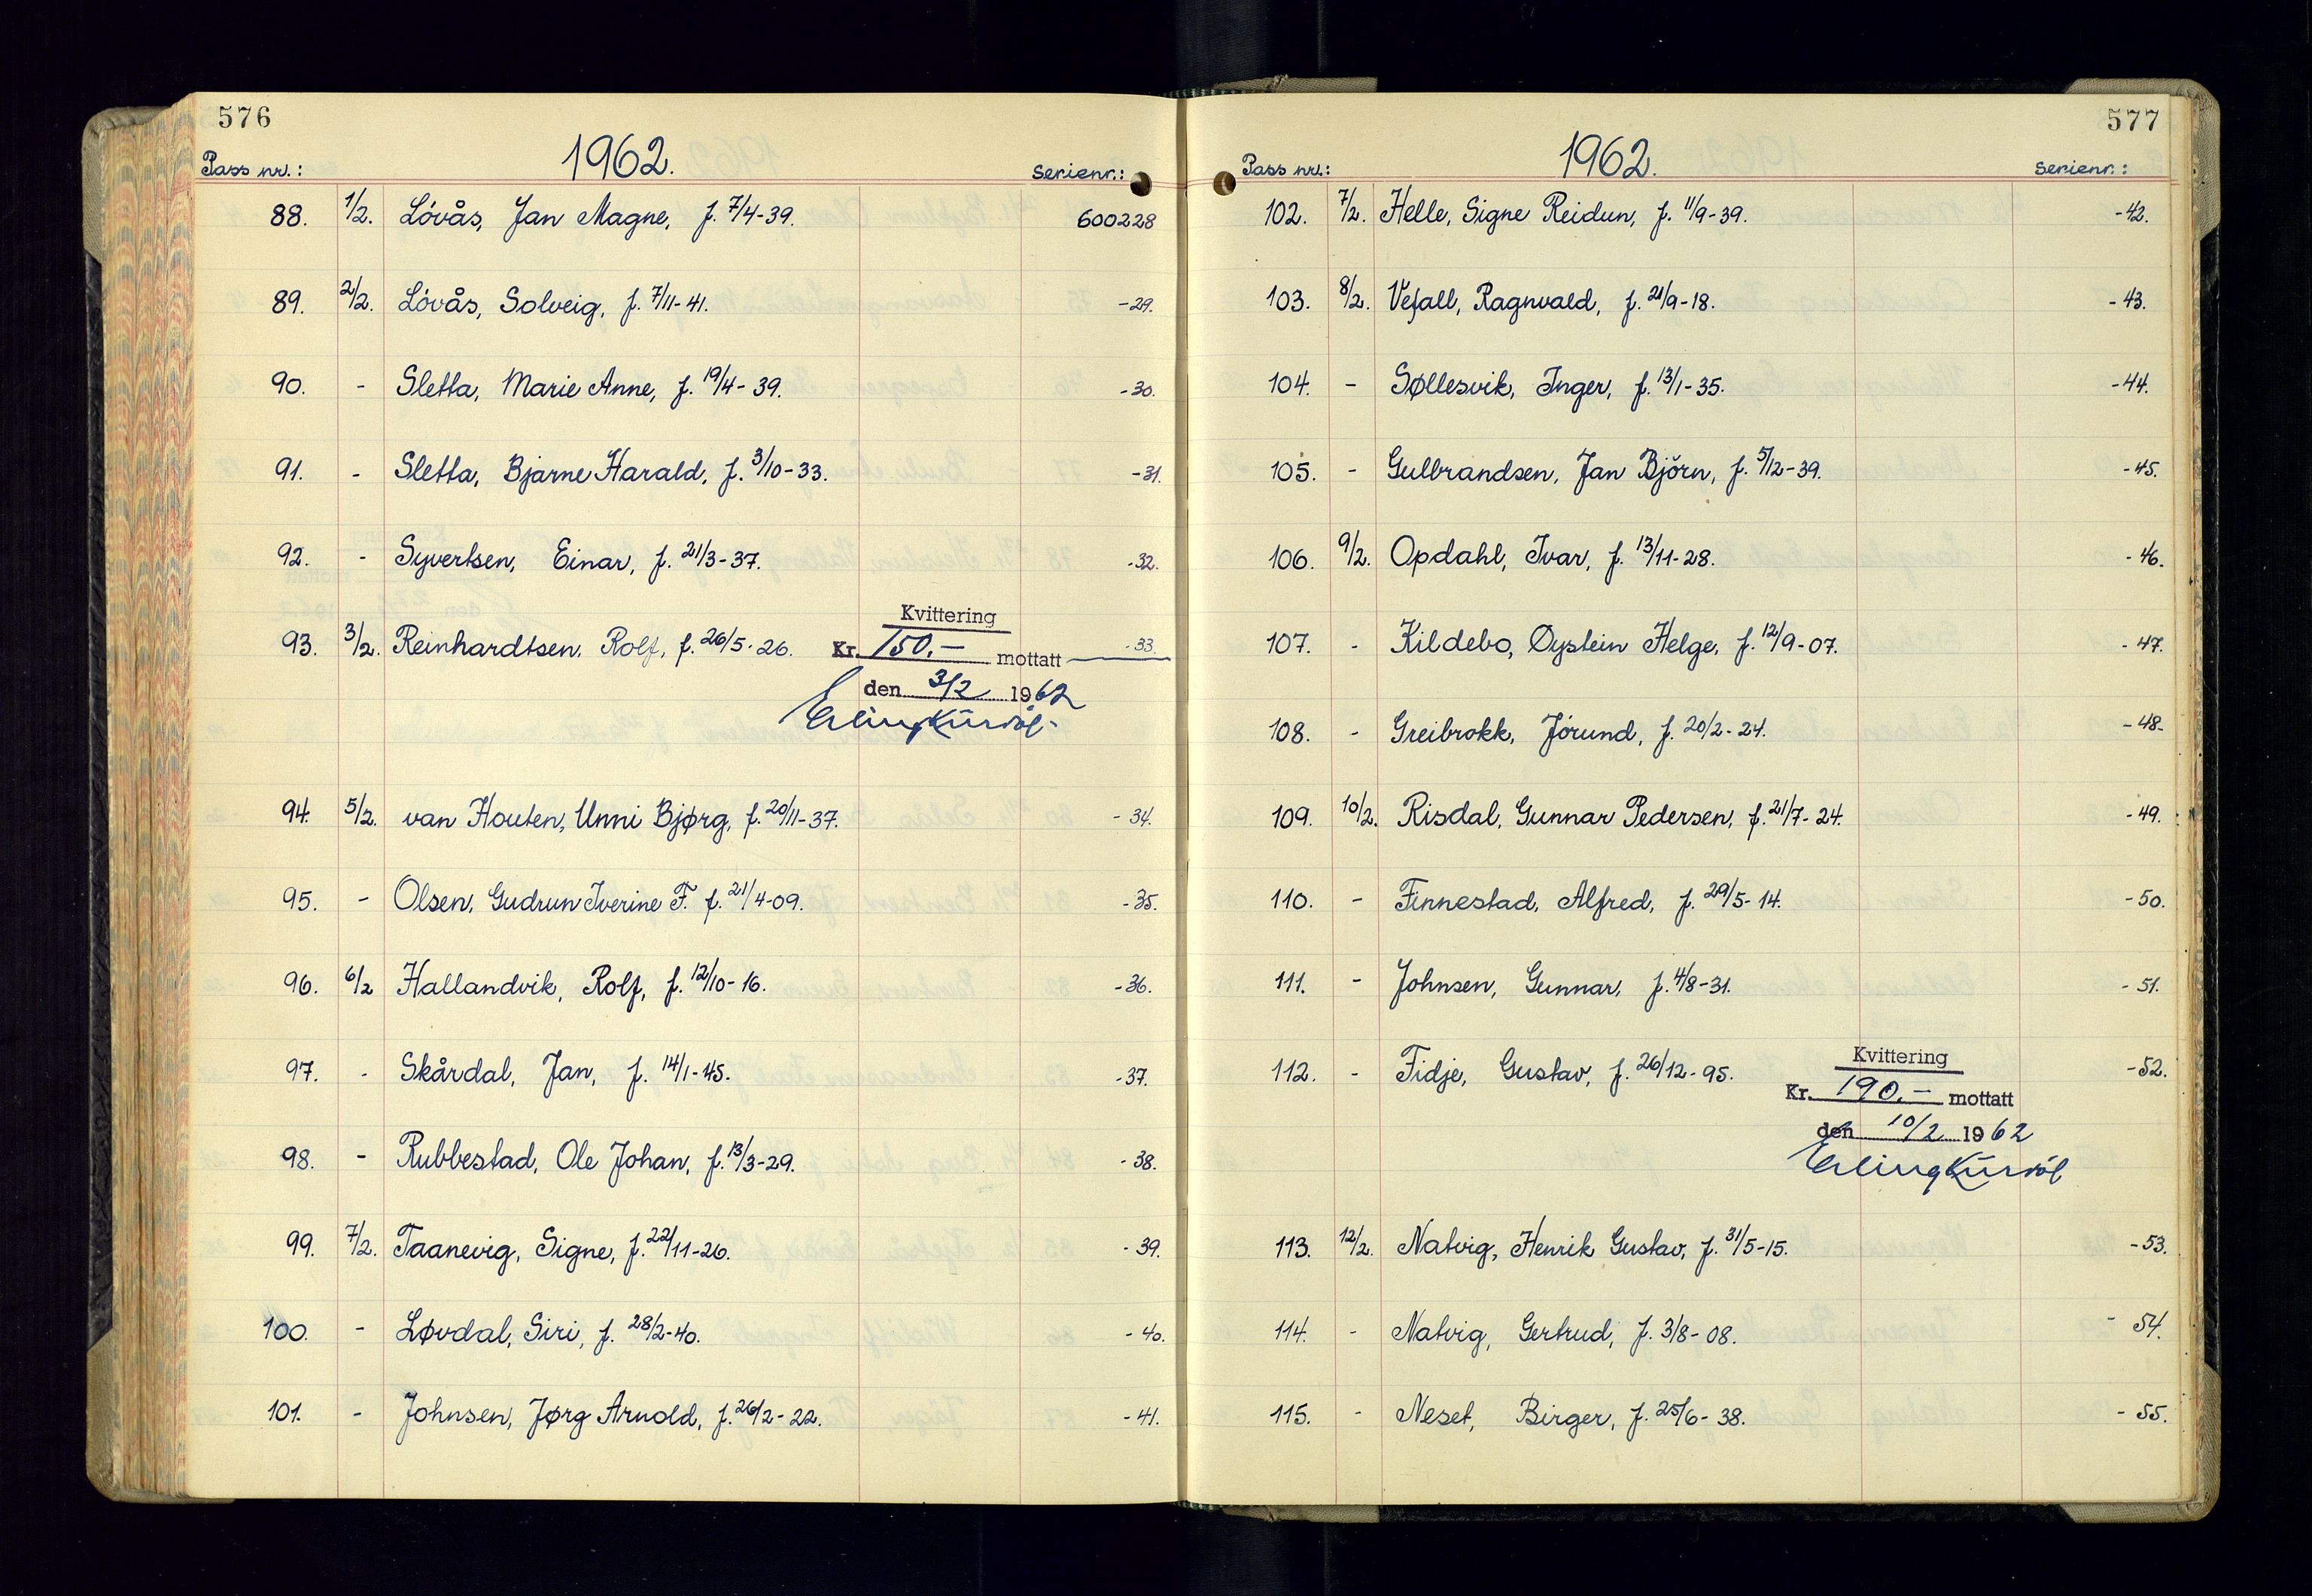 576
1962.
Pass nr.: Serienr.:
88. 1/2. Lövås, Jan Magne, f. 7/4-39. 600228
89. 2/2. Lövås, Solveig, f. 7/11-41. -29.
90. - Sletta, Marie Anne, f. 19/4-39. -30.
91. - Sletta, Bjarne Harald, f. 3/10-33. -31.
92. - Syvertsen, Einar, f. 21/3-37. -32.
93. 3/2. Reinhardtsen, Rolf, f. 26/5-26. -33.
Kvittering
Kr. 150.- mottatt
den 3/2 1962
94. 5/2. van Houten, Unni Bjørg, f. 20/11-37. -34.
95. - Olsen, Gudrun Iverine F. f. 21/4-09. -35.
96. 6/2 Hallandvik, Rolf, f. 12/10-16. -36.
97. - Skårdal, Jan, f. 14/1-45. -37.
98. - Rubbestad, Ole Johan, f. 13/3-29. -38.
99. 7/2. Taanevig, Signe, f. 22/11-26. -39.
100. - Løvdal, Siri, f. 28/2-40. -40.
101. - Johnsen, Jørg Arnold, f. 26/2-22. -41.
577
1962.
Pass nr.: Serienr.:
102. 7/2. Helle, Signe Reidun, f. 11/9-39. -42.
103. 8/2. Vefall, Ragnvald, f. 21/9-18. -43.
104. - Søllesvik, Inger, f. 13/1-35. -44.
105. - Gulbrandsen, Jan Björn, f. 5/12-39. -45.
106. 9/2. Opdahl, Ivar, f. 13/11-28. -46.
107. - Kildebo, Øystein Helge, f. 12/9-07. -47.
108. - Greibrokk, Jörund, f. 20/2-24. -48.
109. 10/2. Risdal, Gunnar Pedersen, f. 21/7-24. -49.
110. - Finnestad, Alfred, f. 29/5-14. -50.
111. - Johnsen, Gunnar, f. 4/8-31. -51.
112. - Fidje, Gustav, f. 26/12-95. -52.
Kvittering
Kr. 190.- mottatt
den 10/2 1962
113. 12/2. Natvig, Henrik Gustav, f. 31/5-15. -53.
114. - Natvig, Gertrud, f. 3/8-08. - 54.
115. - Neset, Birger, f. 25/6-38. - 55.